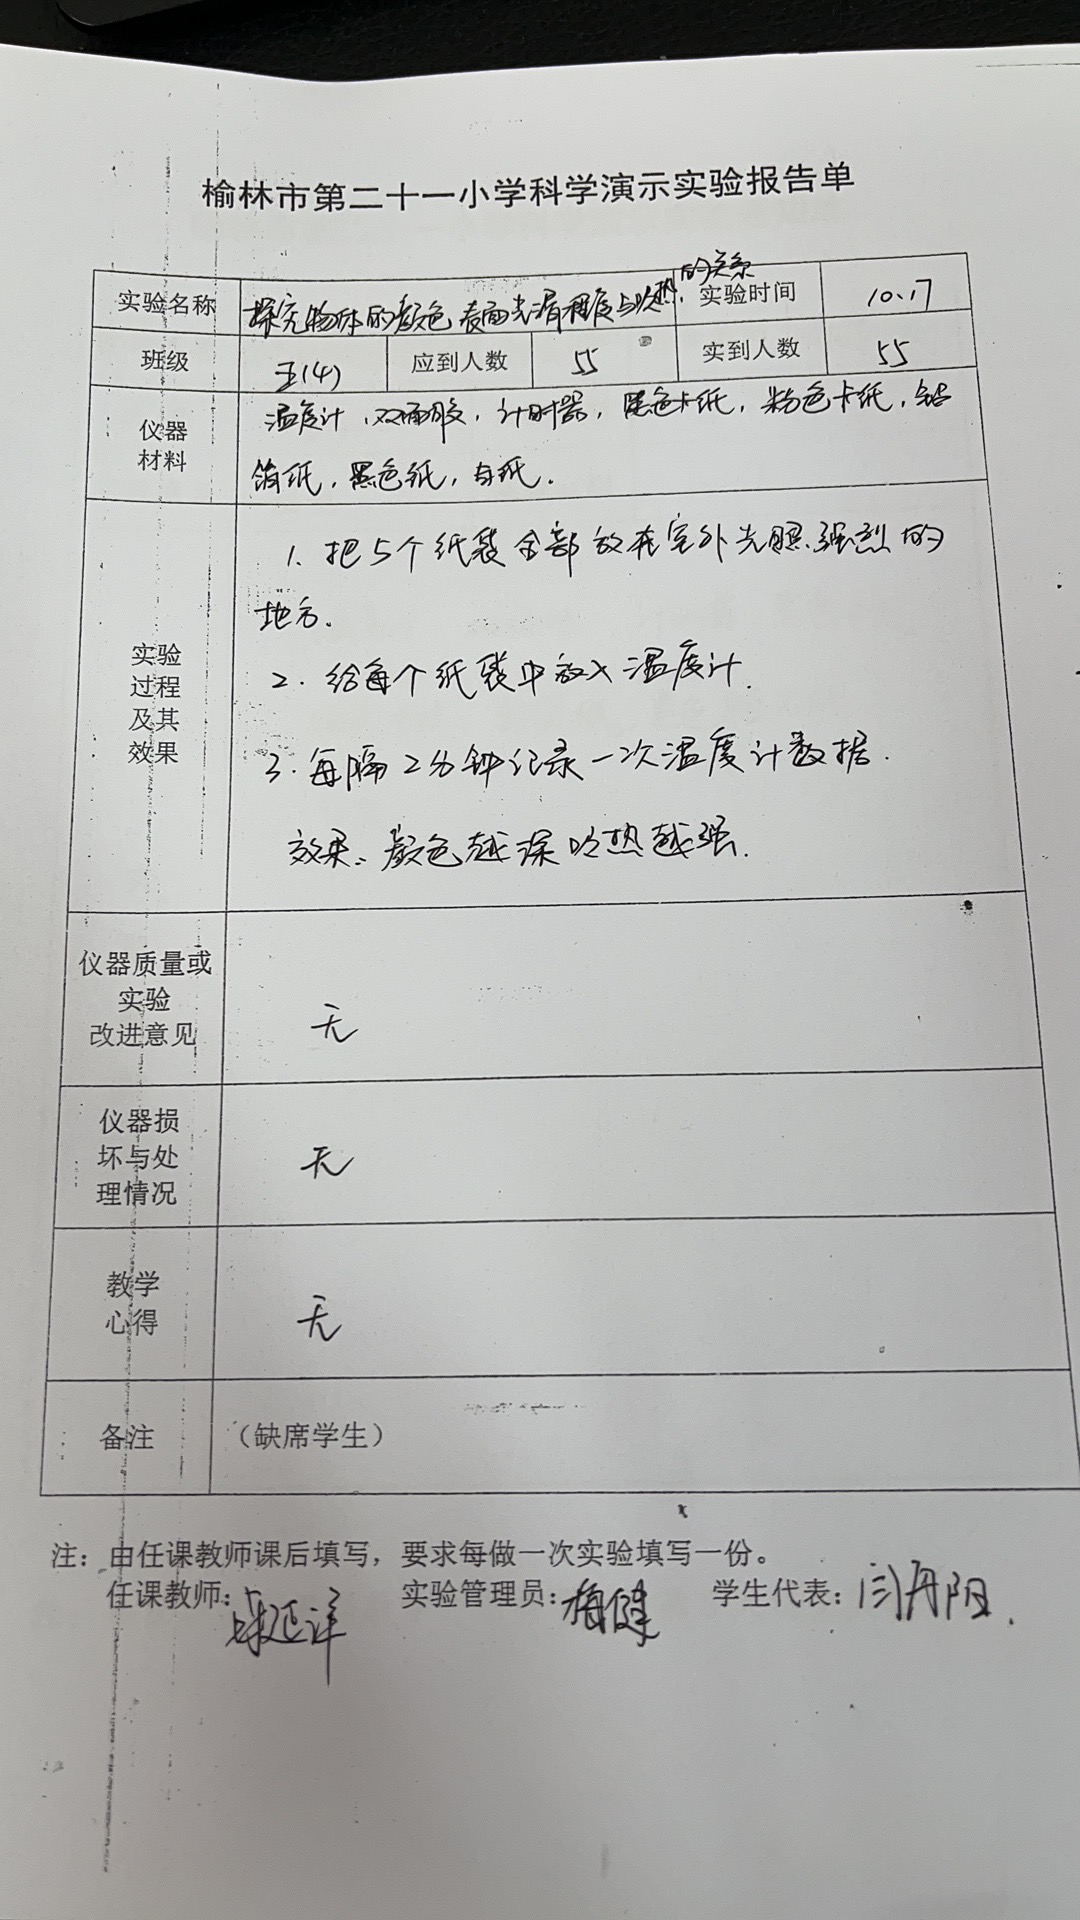 榆林市第二十一小学科学演示实验报告单
实验名称 探究物体的颜色表面光滑程度与吸热的关系 实验时间 10.17
班级 五(4) 应到人数 55 实到人数 55
仪器
材料
温度计，双面胶，计时器，黑色卡纸，粉色卡纸，铝
箔纸，黑色纸，白纸.
实验
过程
及其
效果
1. 把5个纸袋全部放在室外光照强烈的
地方.
2. 给每个纸袋中放入温度计.
3. 每隔2分钟记录一次温度计数据.
效果: 颜色越深吸热越强.
仪器质量或
实验
改进意见
无
仪器损
坏与处
理情况
无
教学
心得
无
备注 （缺席学生）
注：由任课教师课后填写，要求每做一次实验填写一份。
任课教师： 实验管理员：梅健 学生代表：闫丹阳.